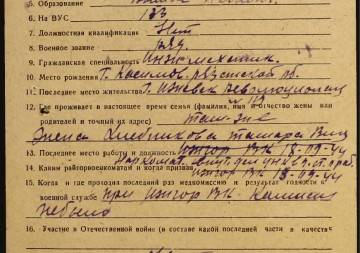 5. Образование
6. На ВУС 133
7. Должностная квалификация Нет
8. Военное звание ряд.
9. Гражданская специальность Инж. механик
10. Место рождения г. Касимов Рязанской об.
11. Последнее место жительства г. Ижевск Революционная
12. Где проживает в настоящее время семья (фамилия, имя и отчество жены или
родителей и точный их адрес) там-же
Жена Хлебникова Тамара
13. Последнее место работы и должность
14. Каким райгорвоенкоматом и когда призван Ижгор ВК 18-09-44
15. Когда и где проходил последний раз медкомиссию и результат годности к
военной службе при Ижгор ВК Комиссии
не было
16. Участие в Отечественной войне (в составе какой последней части в качестве